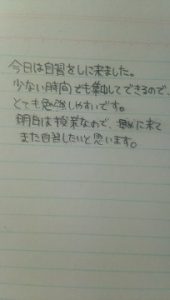 今日は自習をしに来ました。
少ない時間でも集中してできるので
とても勉強しやすいです。
明日は授業なので、早めに来て
また自習したいと思います。